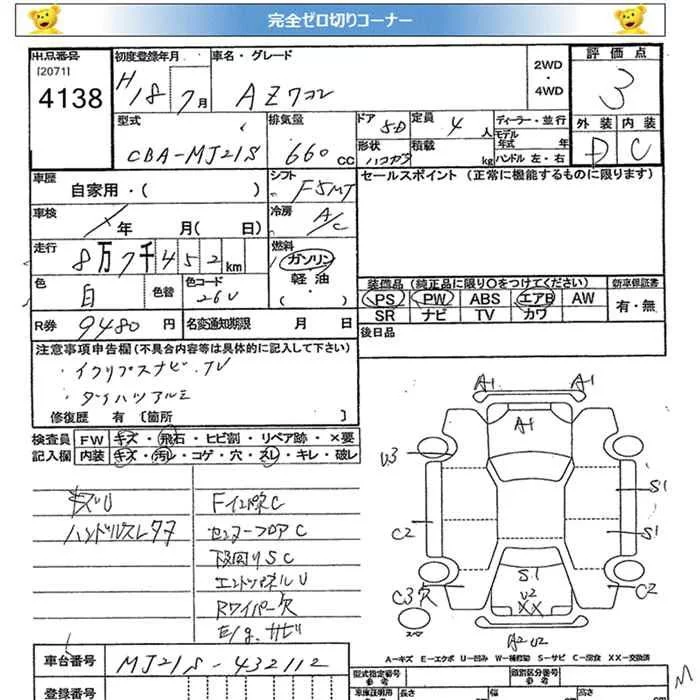 完全ゼロ切りコーナー
出品番号
[2071]
4138
初度登録年月
H18年7月
車名・グレード
AZワゴン
2WD
・
4WD
評価点
3
型式
CBA-MJ21S
排気量
660 CC
ドア 5D
定員 4 人
形状 ハコガタ
積載 kg
ディーラー・並行
モデル年式 年
ハンドル 左・右
外装 内装
D C
車歴
自家用・( )
シフト F5MT
セールスポイント (正常に機能するものに限ります)
車検
年 月( 日)
冷房 A/C
走行
8万7千452 km
燃料
ガソリン
軽油
・( )
色 白
色替
色コード 26U
装備品 (純正品に限り○をつけてください)
PS PW ABS エアB AW
SR ナビ TV カワ
新車保証書
有・無
R券 9480 円
名変通知期限 月 日
後日品
注意事項申告欄 (不具合内容等は具体的に記入して下さい)
・イクリプスナビ・TV
・ダイハツアルミ
修復歴 有 〔箇所 〕
検査員記入欄
FW キズ・飛石・ヒビ割・リペア跡・×要
内装 キズ・汚れ・コゲ・穴・スレ・キレ・破レ
キズU
ハンドルスレ
Fインパネ C
センターフロア C
下回りSC
エンドパネルU
Rワイパー欠
E/g.サビ
A1 A1
A1
U3
S1
S1
C2
S1
C3穴
C2
U2
XX
スペア
A2 U2
A-キズ E-エクボ U-凹み W-補修跡 S-サビ C-腐食 XX-交換済
車台番号
MJ21S-432112
登録番号
型式指定番号
参考
類別区分番号
参考
車庫証明用
参考
長さ
幅
高さ